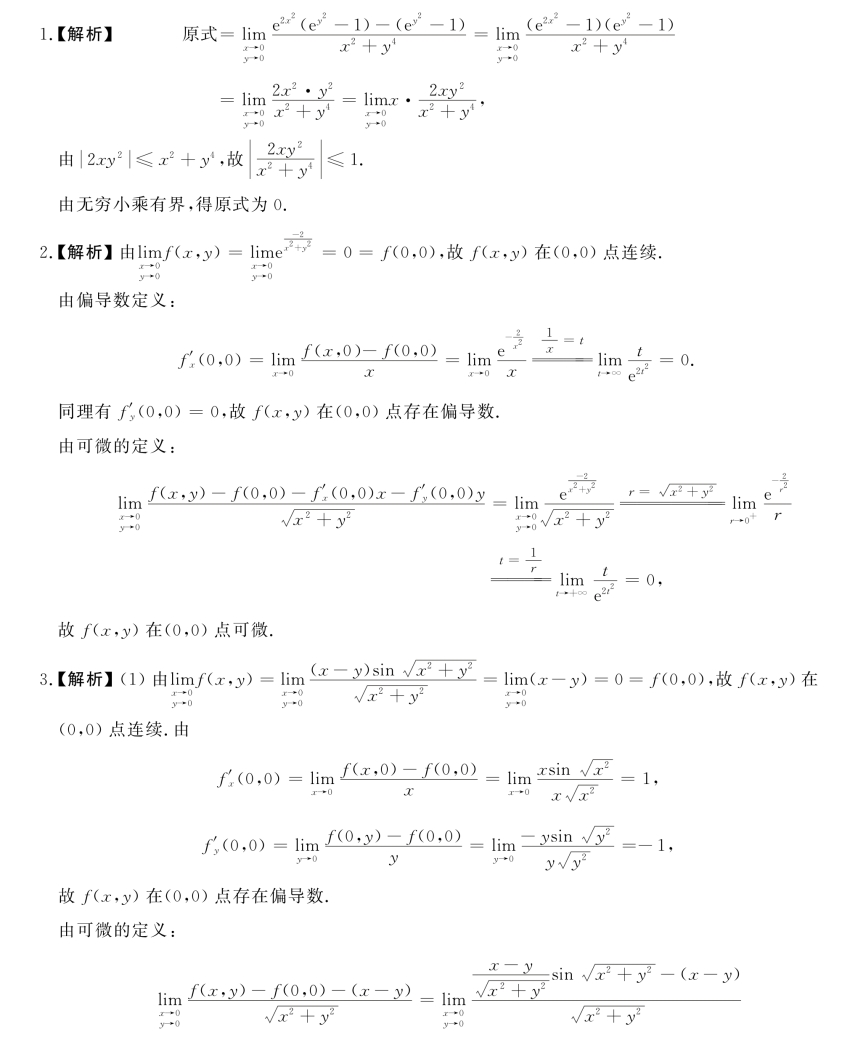 1.【解析】 原式 = lim_{x→0 y→0} (e^{2x²}(e^{y²} − 1) − (e^{y²} − 1))/(x² + y⁴) = lim_{x→0 y→0} ((e^{2x²} − 1)(e^{y²} − 1))/(x² + y⁴)
= lim_{x→0 y→0} (2x² · y²)/(x² + y⁴) = lim_{x→0 y→0} x · (2xy²)/(x² + y⁴),
由 |2xy²| ≤ x² + y⁴,故 |(2xy²)/(x² + y⁴)| ≤ 1.
由无穷小乘有界,得原式为 0.
2.【解析】由 lim_{x→0 y→0} f(x,y) = lim_{x→0 y→0} e^{−2/(x²+y²)} = 0 = f(0,0),故 f(x,y) 在(0,0) 点连续.
由偏导数定义:
f′ₓ(0,0) = lim_{x→0} (f(x,0) − f(0,0))/x = lim_{x→0} e^{−2/x²}/x ==(1/x = t)== lim_{t→∞} t/e^{2t²} = 0.
同理有 f′_y(0,0) = 0,故 f(x,y) 在(0,0) 点存在偏导数.
由可微的定义:
lim_{x→0 y→0} (f(x,y) − f(0,0) − f′ₓ(0,0)x − f′_y(0,0)y)/√(x² + y²) = lim_{x→0 y→0} e^{−2/(x²+y²)}/√(x² + y²) ==(r = √(x² + y²))== lim_{r→0⁺} e^{−2/r²}/r
==(t = 1/r)== lim_{t→+∞} t/e^{2t²} = 0,
故 f(x,y) 在(0,0) 点可微.
3.【解析】(1) 由 lim_{x→0 y→0} f(x,y) = lim_{x→0 y→0} ((x − y)sin √(x² + y²))/√(x² + y²) = lim_{x→0 y→0} (x − y) = 0 = f(0,0),故 f(x,y) 在
(0,0) 点连续.由
f′ₓ(0,0) = lim_{x→0} (f(x,0) − f(0,0))/x = lim_{x→0} (xsin √(x²))/(x√(x²)) = 1,
f′_y(0,0) = lim_{y→0} (f(0,y) − f(0,0))/y = lim_{y→0} (− ysin √(y²))/(y√(y²)) = − 1,
故 f(x,y) 在(0,0) 点存在偏导数.
由可微的定义:
lim_{x→0 y→0} (f(x,y) − f(0,0) − (x − y))/√(x² + y²) = lim_{x→0 y→0} ((x − y)/√(x² + y²) sin √(x² + y²) − (x − y))/√(x² + y²)